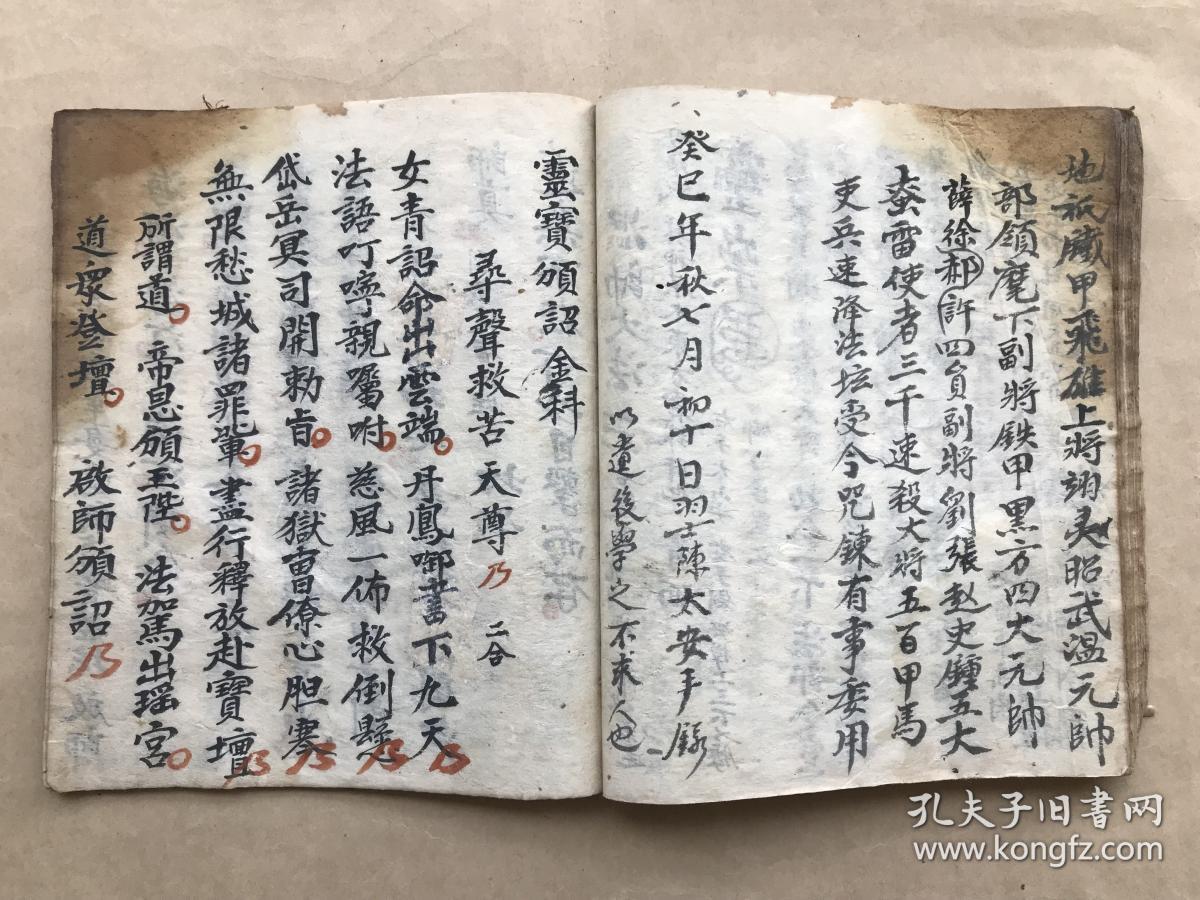 地祇鐵甲飛雄上将翊灵昭武溫元帥
部領麾下副將鉄甲黒方四大元帥
薛徐郝許四負副將劉張赵史鍾五大
蛮雷使者三千速殺大將五百甲馬
吏兵速降法坛受令咒鍊有事委用
癸巳年秋七月初十日羽士陳太安手錄
以遺後學之不求人也
靈寶頒詔金科
尋聲救苦天尊 二合
女青詔命出雲端。丹鳳啣書下九天
法語叮嚀親囑咐。慈風一佈救倒懸
岱岳冥司開勅旨。諸獄曹僚心胆寒
無限愁城諸罪輩。盡行釋放赴寶壇
所謂道。帝恩頒玉陛。法駕出瑶宮。
道衆登壇。啟師頒詔
孔夫子旧书网
www.kongfz.com